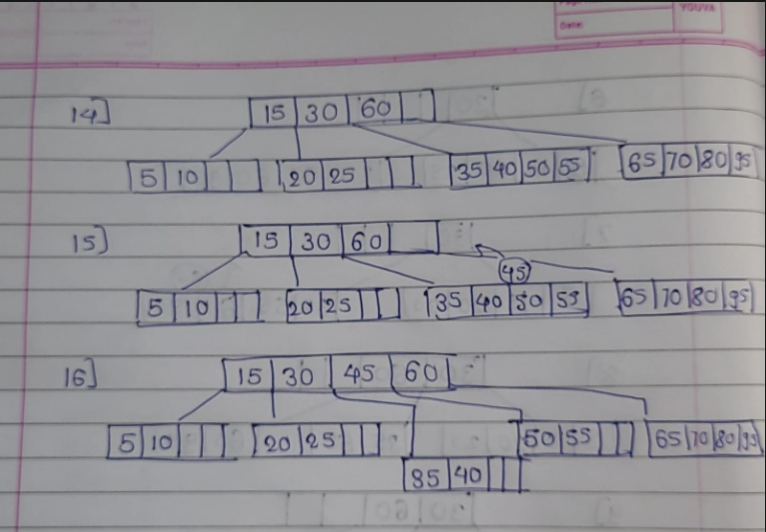 YOUVA
Date:
14] 15 30 60
5 10 20 25 35 40 50 55 65 70 80 95
15] 15 30 60
45
5 10 20 25 35 40 50 55 65 70 80 95
16] 15 30 45 60
5 10 20 25 50 55 65 70 80 95
85 40